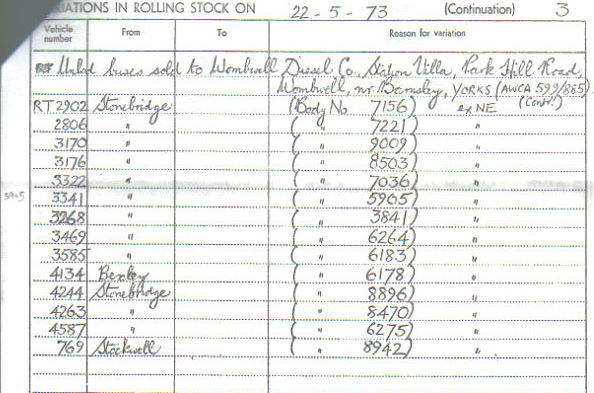 VARIATIONS IN ROLLING STOCK ON 22-5-73 (Continuation) 3
Vehicle number From To Reason for variation
buses sold to Wombwell Diesel Co., Station Villa, Park Hill Road,
Wombwell, nr. Barnsley, YORKS (AWCA 599/885).
RT2902 Stonebridge (Body No. 7156) ex NE (Contd.)
2806 " ( " 7221) "
3170 " ( " 9009) "
3176 " ( " 8503) "
3322 " ( " 7036) "
5905 3341 " ( " 5905) "
3268 " ( " 3841) "
3469 " ( " 6264) "
3585 " ( " 6183) "
4134 Bexley ( " 6178) "
4244 Stonebridge ( " 8896) "
4263 " ( " 8470) "
4587 " ( " 6275) "
769 Stockwell ( " 8942) "